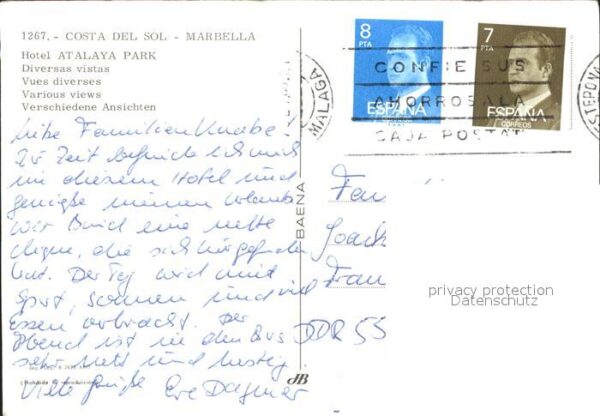 1267.- COSTA DEL SOL - MARBELLA
Hotel ATALAYA PARK
Diversas vistas
Vues diverses
Various views
Verschiedene Ansichten
8 PTA
ESPAÑA
7 PTA
ESPAÑA
CORREOS
MALAGA
CONFIE SUS
AHORROS A LA
CAJA POSTAL
ESTEPONA
Liebe Familien Knabe
Zur Zeit befinde ich mich
in diesem Hotel und
genieße meinen Urlaub.
Wir sind eine nette
Clique, die sich hier gefunden
hat. Der Tag wird mit
Sport, sonnen und viel
Essen verbracht. Der
Abend ist in den Bars
sehr nett und lustig
Viele Grüße Eve Dagmar
BAENA
Fam
Joach
Frau
DDR 55
privacy protection
Datenschutz
JB